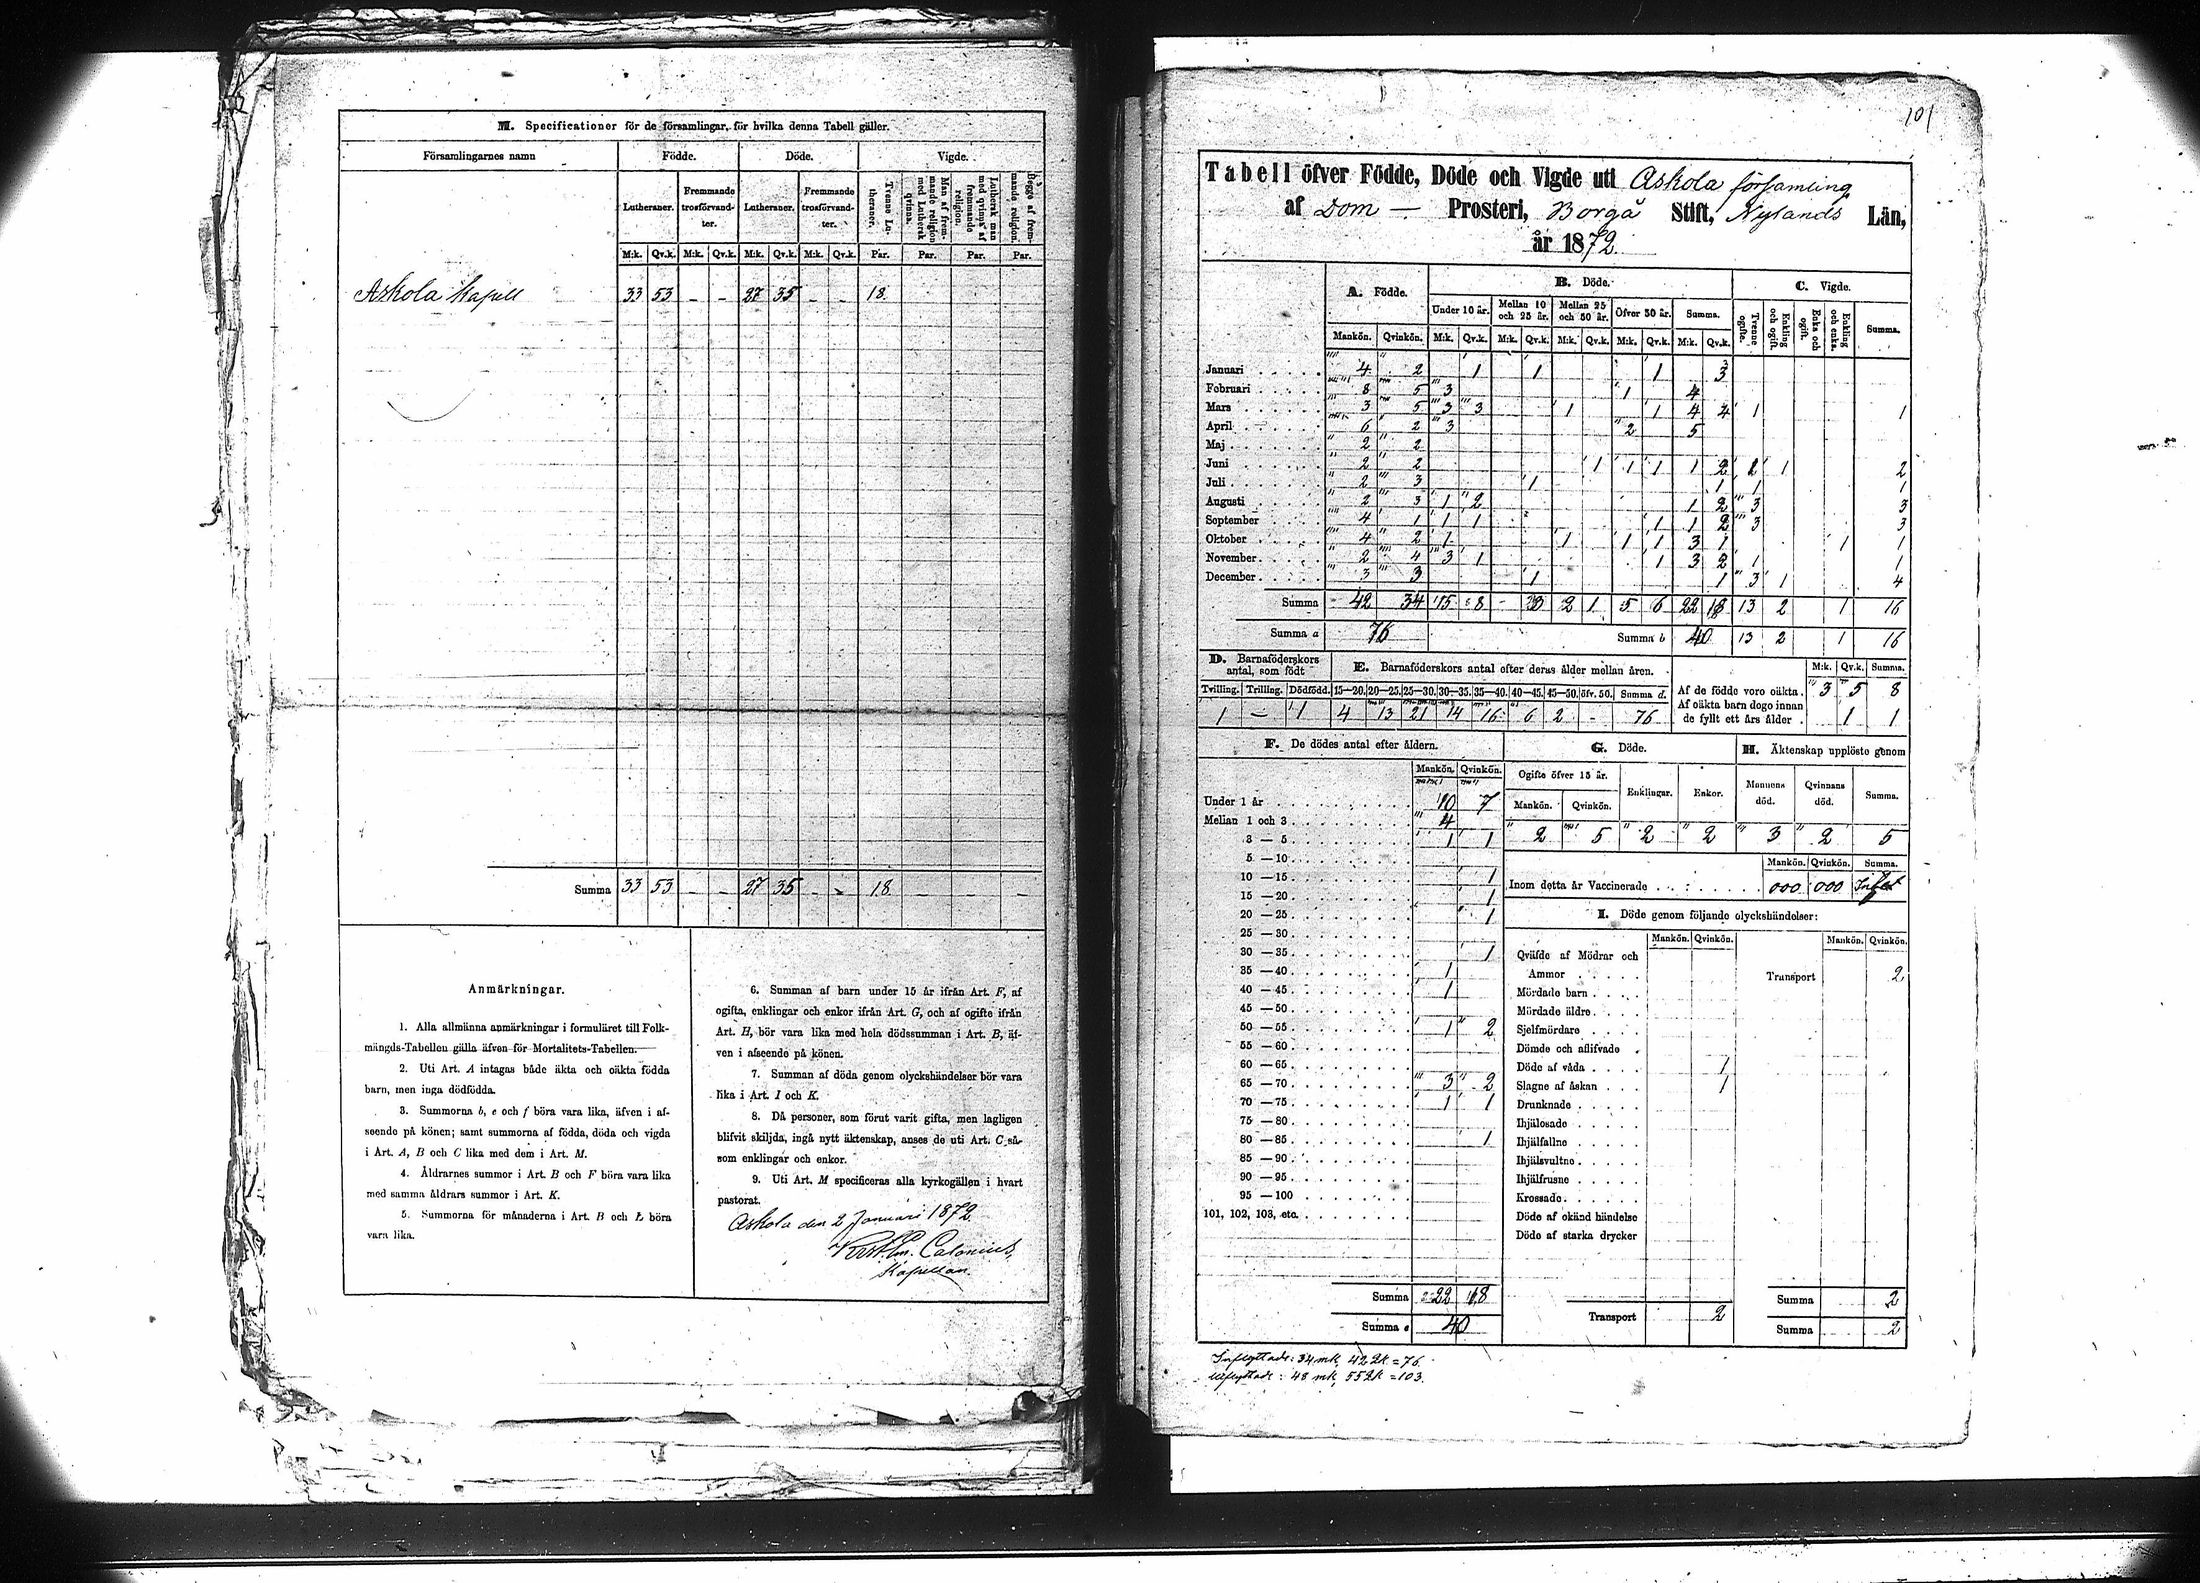 M. Specificationer för de församlingar, för hvilka denna Tabell gäller.
Församlingarnes namn Födde. Döde. Vigde.
Lutheraner. Fremmande trosförvandter. Lutheraner. Fremmande trosförvandter. Tvenne Lutheraner. Man af fremmande religion med Luthersk qvinna. Luthersk man med qvinna af fremmande religion. Begge af fremmande religion.
M:k. Qv.k. M:k. Qv.k. M:k. Qv.k. M:k. Qv.k. Par. Par. Par. Par.
Askola Kapell 33 53 - - 27 35 - - 18
Summa 33 53 - - 27 35 - - 18 - - -
Anmärkningar.
1. Alla allmänna anmärkningar i formuläret till Folk-
mängds-Tabellen gälla äfven för Mortalitets-Tabellen.
2. Uti Art. A intagas både äkta och oäkta födda
barn, men inga dödfödda.
3. Summorna b, e och f böra vara lika, äfven i af-
seende på könen; samt summorna af födda, döda och vigda
i Art. A, B och C lika med dem i Art. M.
4. Åldrarnes summor i Art. B och F böra vara lika
med samma åldrars summor i Art. K.
5. Summorna för månaderna i Art. B och L böra
vara lika.
6. Summan af barn under 15 år ifrån Art. F, af
ogifta, enklingar och enkor ifrån Art. G, och af ogifte ifrån
Art. H, bör vara lika med hela dödssumman i Art. B, äf-
ven i afseende på könen.
7. Summan af döda genom olyckshändelser bör vara
lika i Art. I och K.
8. Då personer, som förut varit gifta, men lagligen
blifvit skiljda, ingå nytt äktenskap, anses de uti Art. C så-
som enklingar och enkor.
9. Uti Art. M specificeras alla kyrkogällen i hvart
pastorat.
Askola den 2 Januari 1872
Calonius,
Kapellan.
101
Tabell öfver Födde, Döde och Vigde uti Askola församling
af Dom — Prosteri, Borgå Stift, Nylands Län,
år 1872.
A. Födde. B. Döde. C. Vigde.
Under 10 år. Mellan 10 och 25 år. Mellan 25 och 50 år. Öfver 50 år. Summa. Tvenne ogifte. Enkling och ogift. Enka och ogift. Enkling och enka. Summa.
Mankön. Qvinkön. M:k. Qv.k. M:k. Qv.k. M:k. Qv.k. M:k. Qv.k. M:k. Qv.k.
Januari 4 2 1 1 1 3
Februari 8 5 3 1 4
Mars 3 5 3 3 1 1 4 4 1 1
April 6 2 3 2 5
Maj 2 2
Juni 2 2 1 1 1 1 2 1 1 2
Juli 2 3 1 1 1 1
Augusti 2 3 1 2 1 2 3 3
September 4 1 1 1 1 1 2 3 3
Oktober 4 2 1 1 1 1 3 1 1 1
November 2 4 3 1 1 3 2 1 1
December 3 3 1 1 3 1 4
Summa 42 34 15 8 - 3 2 1 5 6 22 18 13 2 1 16
Summa a 76 Summa b 40 13 2 1 16
D. Barnaföderskors antal, som födt E. Barnaföderskors antal efter deras ålder mellan åren. M:k. Qv.k. Summa.
Tvilling. Trilling. Dödfödd. 15—20. 20—25. 25—30. 30—35. 35—40. 40—45. 45—50. öfv. 50. Summa d. Af de födde voro oäkta. 3 5 8
1 — 1 4 13 21 14 16 6 2 - 76 Af oäkta barn dogo innan de fyllt ett års ålder . 1 1
F. De dödes antal efter åldern. G. Döde. H. Äktenskap upplöste genom
Mankön. Qvinkön. Ogifte öfver 15 år. Enklingar. Enkor. Mannens död. Qvinnans död. Summa.
Mankön. Qvinkön.
2 5 2 2 3 2 5
Mankön. Qvinkön. Summa.
Inom detta år Vaccinerade 000 000
Under 1 år 10 7
Mellan 1 och 3 4
3 — 5 1 1
5 —10
10 —15 1
15 —20 1
20 —25 1
25 —30
30 —35 1
35 —40 1
40 —45 1
45 —50
50 —55 1 2
55 —60
60 —65
65 —70 3 2
70 —75 1 1
75 —80
80 —85 1
85 —90
90 —95
95 —100
101, 102, 103, etc.
Summa 22 18
Summa e 40
I. Döde genom följande olyckshändelser:
Mankön. Qvinkön. Mankön. Qvinkön.
Qväfde af Mödrar och
Ammor Transport 2
Mördade barn
Mördade äldre
Sjelfmördare
Dömde och aflifvade
Döde af våda 1
Slagne af åskan 1
Drunknade
Ihjälosade
Ihjälfallne
Ihjälsvultne
Ihjälfrusne
Krossade
Döde af okänd händelse
Döde af starka drycker
Summa 2
Transport 2 Summa 2
Inflyttade: 34 mk, 42 2k = 76.
Utflyttade: 48 mk, 55 2k = 103.